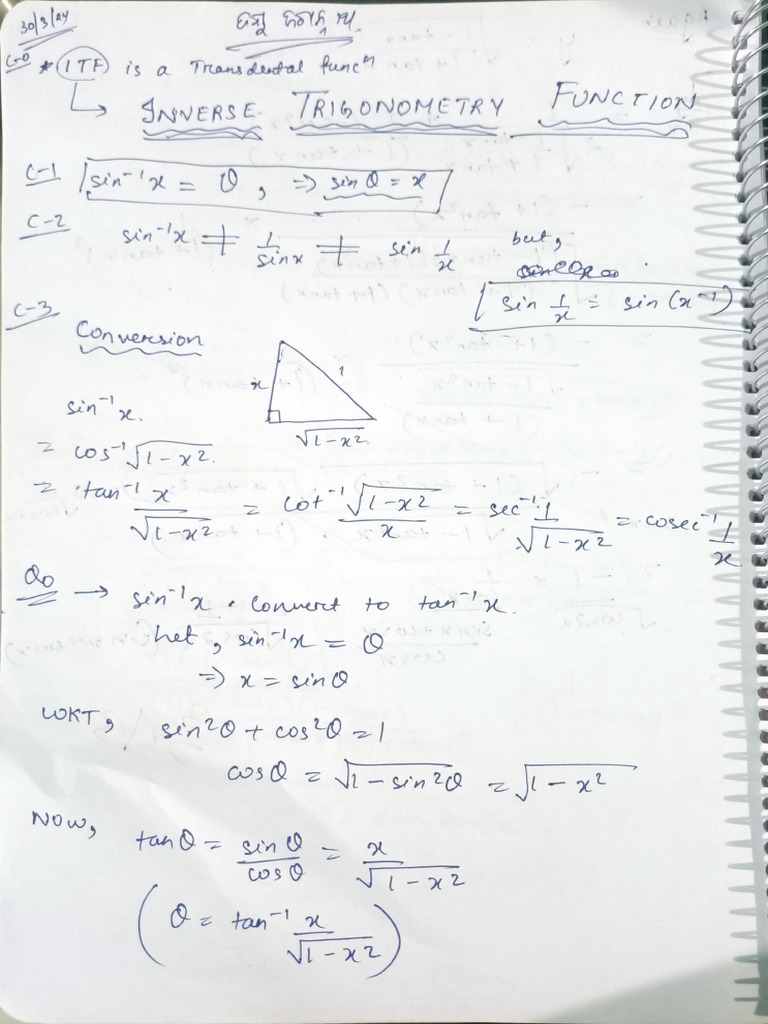 30/3/24
ଜୟ ଜଗନ୍ନାଥ
C-0 * ITF is a Transdental funcⁿ
↳ INVERSE TRIGONOMETRY FUNCTION
C-1 sin⁻¹x = θ, ⇒ sinθ = x
C-2 sin⁻¹x ≠ 1/sinx ≠ sin 1/x but,
sin 1/x = sin(x⁻¹)
C-3 Conversion
x 1 √(1-x²)
sin⁻¹x.
= cos⁻¹√(1-x²).
= tan⁻¹ x/√(1-x²) = cot⁻¹ √(1-x²)/x = sec⁻¹ 1/√(1-x²) = cosec⁻¹ 1/x
Q0 → sin⁻¹x . convert to tan⁻¹x.
Let, sin⁻¹x = θ
⇒ x = sinθ
WKT, sin²θ + cos²θ = 1
cosθ = √(1-sin²θ) = √(1-x²)
Now,
tanθ = sinθ/cosθ = x/√(1-x²)
(θ = tan⁻¹ x/√(1-x²))